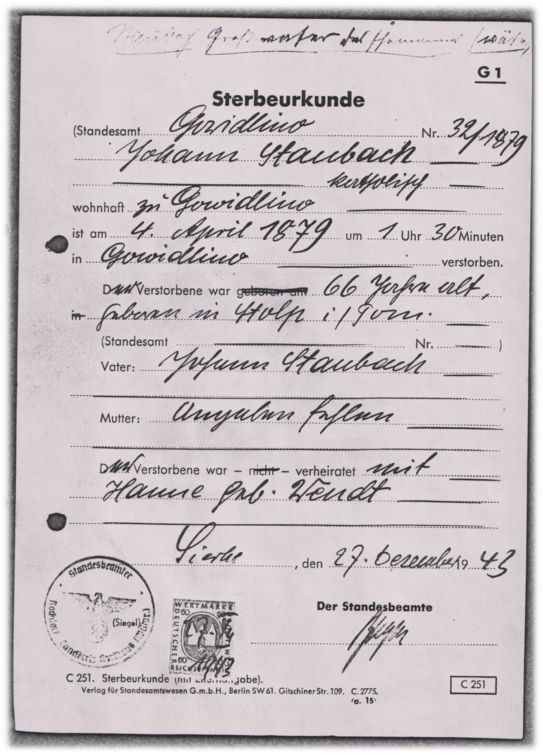 Großvater des
G 1
Sterbeurkunde
(Standesamt Gowidlino Nr. 32/1879
Johann Staubach
katholisch
wohnhaft zu Gowidlino
ist am 4. April 1879 um 1 Uhr 30 Minuten
in Gowidlino verstorben.
Der Verstorbene war geboren am 66 Jahre alt,
in geboren in Stolp i/Pom.
(Standesamt Nr. )
Vater: Johann Staubach
Mutter: Angaben fehlen
Der Verstorbene war – nicht – verheiratet mit
Hanne geb. Wendt
, den 27. Dezember 19 43
Standesbeamter
(Siegel)
WERTMARKE
60
DEUTSCHER
60
1943
Der Standesbeamte
C 251. Sterbeurkunde (mit Elternangabe).
Verlag für Standesamtswesen G.m.b.H., Berlin SW 61. Gitschiner Str. 109. C. 2775.
C 251